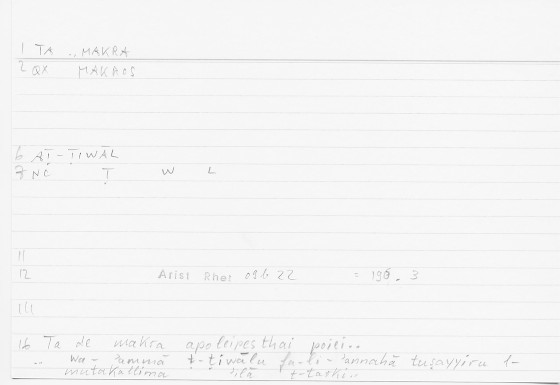 1 TA .. MAKRA
2 QX MAKROS
6 AṬ-ṬIWĀL
7 NC Ṭ W L
11
12 Arist Rhet 09b22 = 196.3
16 Ta de makra apoleipesthai poiei..
.. wa-ʾammā ṭ-ṭiwālu fa-li-ʾannahā tuṣayyiru l-
mutakallima ʾilā t-tatki..